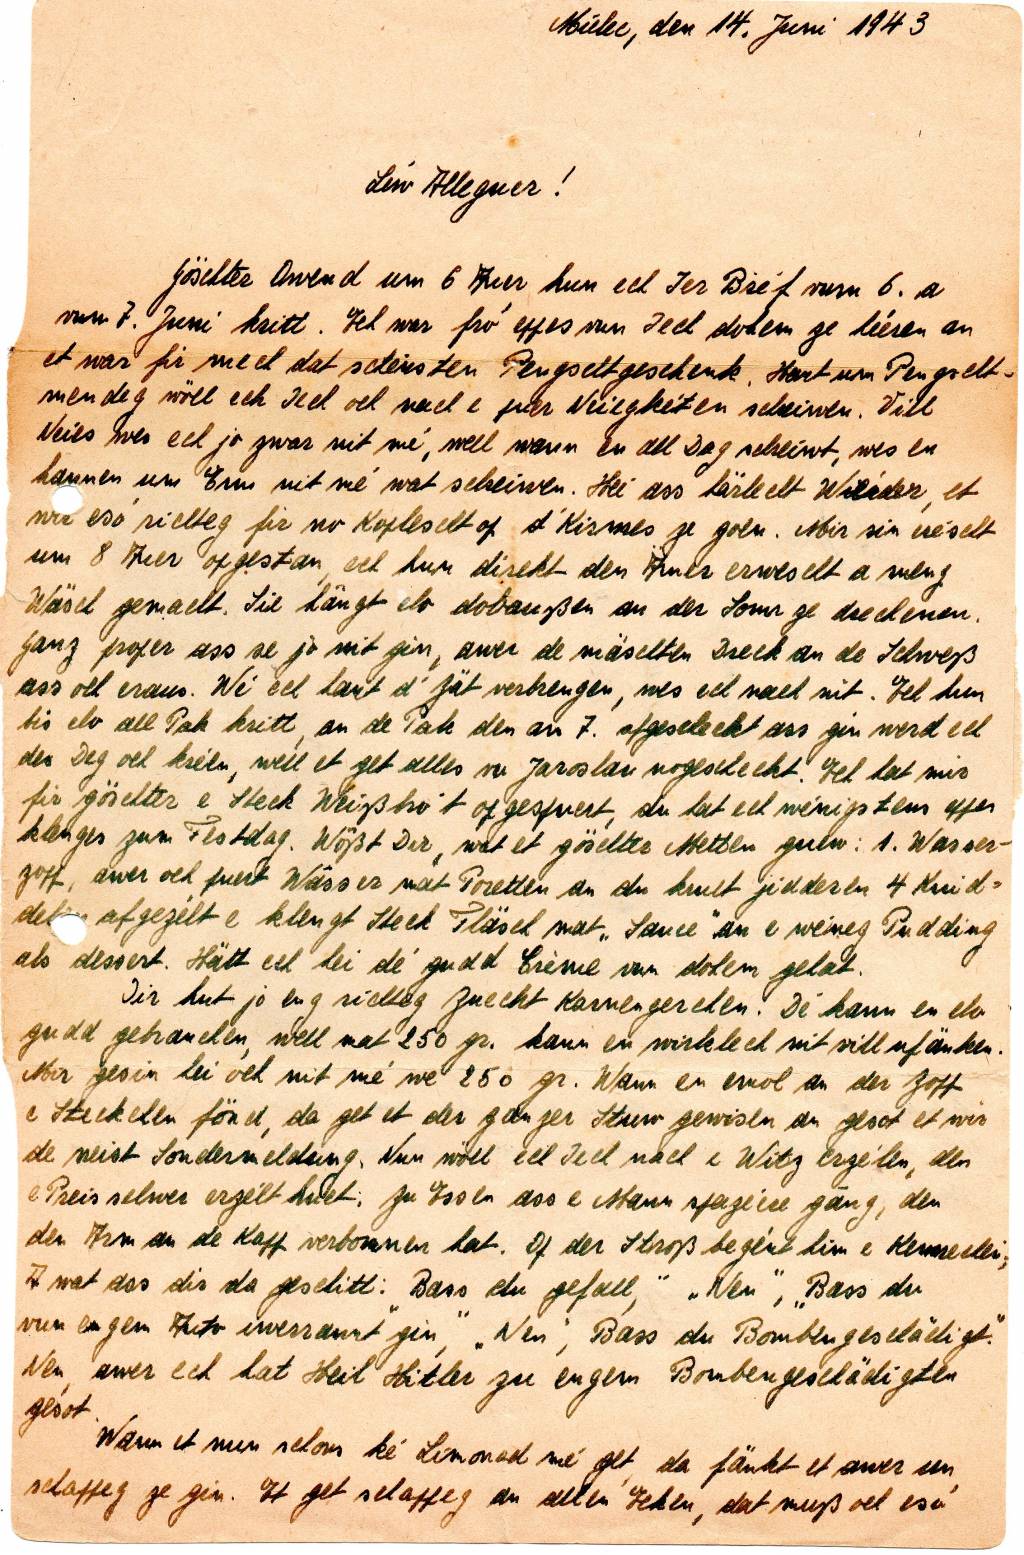 Mielec, den 14. Juni 1943
Léiw Alleguer!
Göschter Owend um 6 Auer hun ech Ier Bréf vum 6. a
vum 7. Juni kritt. Ech war fró eppes vun Iech dohem ze héieren an
et war fir mech dat schéinsten Pengschtgeschenk. Haut um Pengscht-
mendeg wöll ech Iech och nach e puer Neiegkéten schreiwen. Vill
Neies wes ech jo zwar nit mé, well wann en all Dag schreiwt, wes en
hannen um Enn nit mé wat schreiwen. Hei ass härlecht Wieder, et
wir esó richteg fir no Koplescht op d'Kirmes ze goen. Mir sin éischt
um 8 Auer opgestan, ech hun direkt den Amer erwescht a meng
Wäsch gemacht. Sie hängt elo dobaußen an der Sonn ze drechenen.
Ganz proper ass se jo nit gin, awer de mäschten Dreck an de Schweß
ass och eraus. Wé ech haut d'Zät verbrengen, wes ech nach nit. Ech hun
bis elo all Pak kritt, an de Pak den an 7. ofgescheckt ass gin werd ech
der Deg och kréien, well et get alles vu Jaroslau nogescheckt. Ech hat mir
fir göschter e Steck Weißbró't opgespuert, du hat ech wénigstens eppes
klenges zum Festdag. Wößt Dir, wat et göschter Metten guew: 1. Wasser-
zopp, awer och puert Wässer mat Poretten an du krut jidderen 4 Knid-
delen afgezélt e klengt Steck Fläsch mat „Sauce" an e wéineg Pudding
als dessert. Hätt ech hei dé gudd Créme vun dohem gehat.
Dir hut jo eng richteg Zuecht Karnengercher. Dé kann en elo
gudd gebrauchen, well mat 250 gr. kann en wirklech nit vill ufänken.
Mir gesin hei och nit mé wé 250 gr. Wann en emol an der Zopp
e Steckelen fönd, da get et der ganzer Stuw gewisen an gesot et wir
de neist Sondermeldung. Nun wöll ech Iech nach e Witz erzélen, den
e Preis selwer erzélt huet: Zu Essen ass e Mann spazéiere gäng, den
den Arm an de Kapp verbonnen hat. Op der Stroß begént him e Kenner
A wat ass dir da geschitt: Bass du gefall," „Nen", „Bass du
vun engem Auto iwerrannt gin," „Nen", Bass du Bombengeschädigt."
Nen, awer ech hat Heil Hitler zu engem Bombengeschädigten
gesot.
Wann et nun schons ké Limonad mé get, da fänkt et awer un,
schappeg ze gin. Et get schappeg an allen Ecken, dat muß och esó